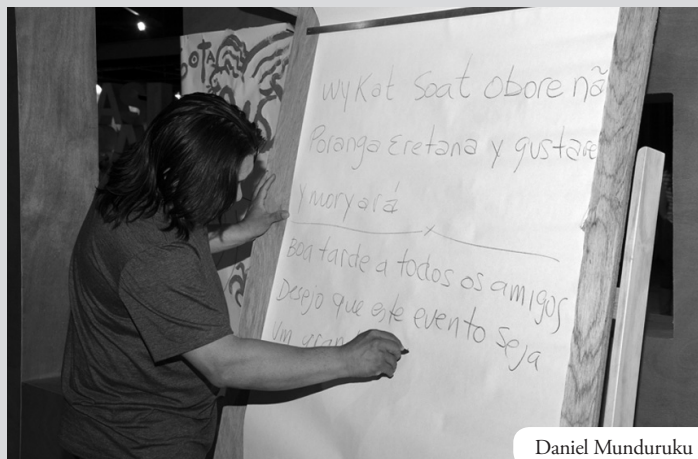 OTA
wyKat Soat Obore nã
Poranga Eretana y gustare
ymoryará
Boa tarde a todos os amigos
Desejo que este evento seja
Um gran
Daniel Munduruku